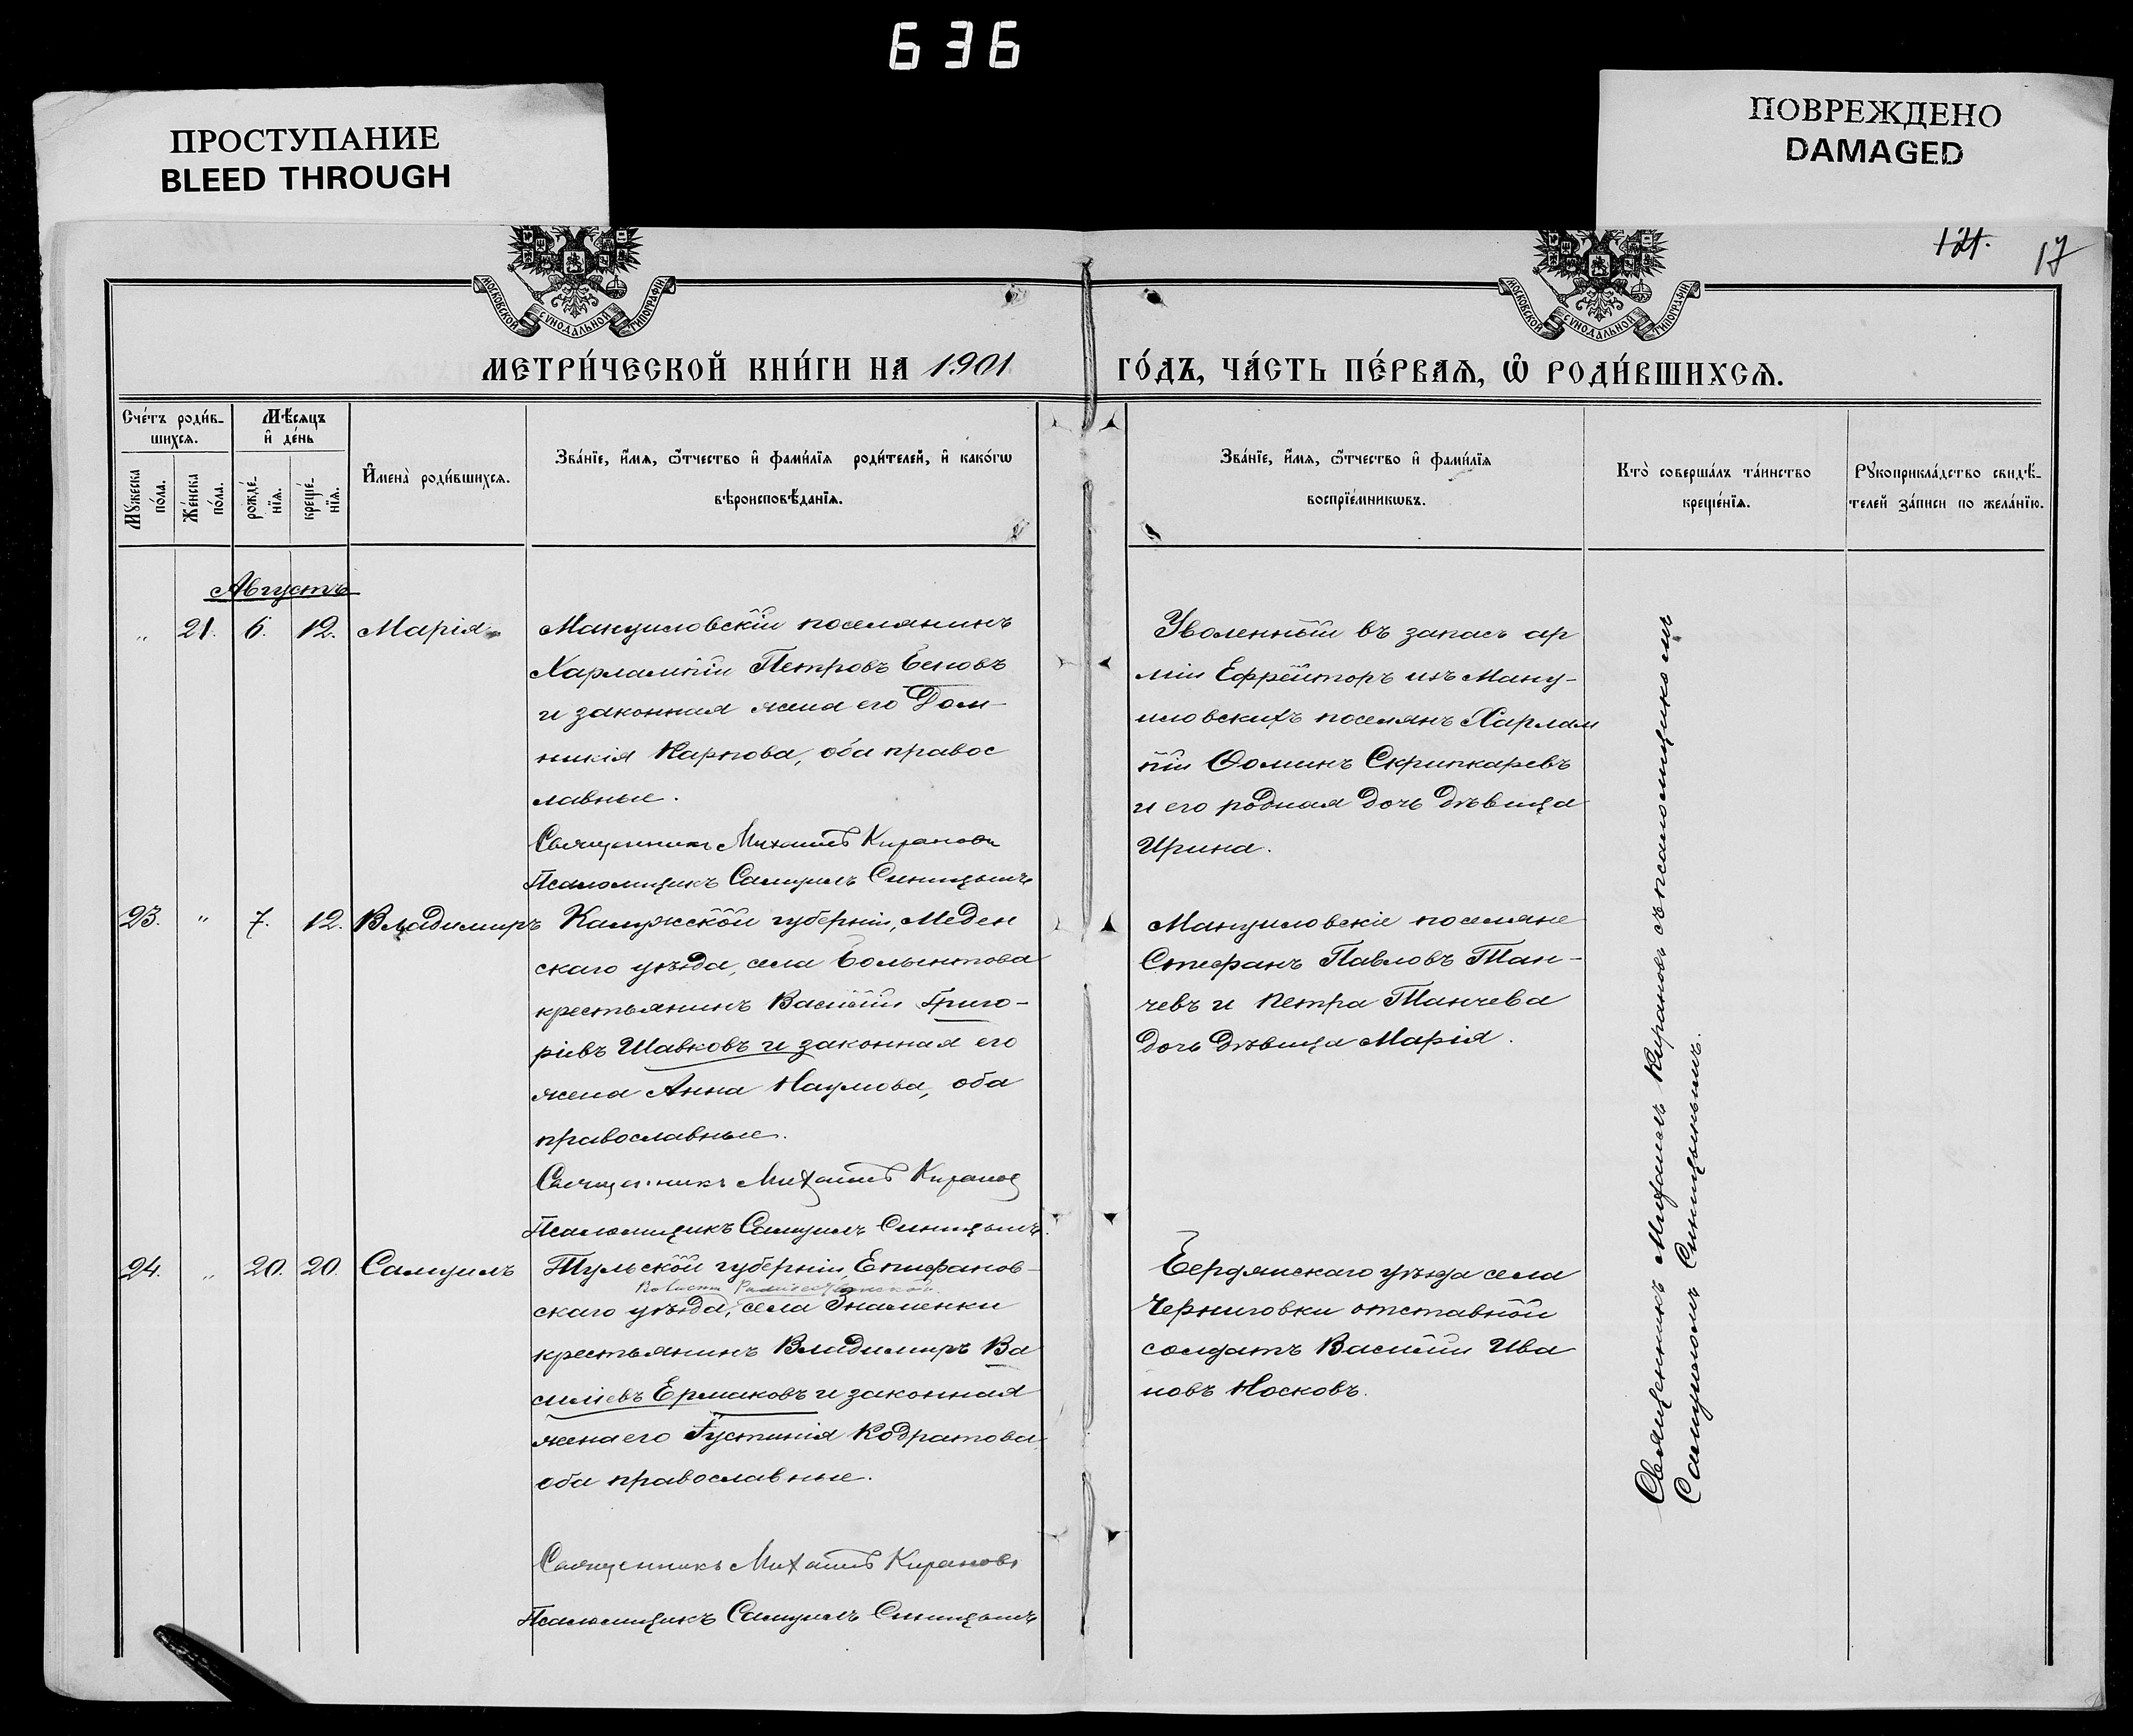 636
ПРОСТУПАНИЕ
BLEED THROUGH
ПОВРЕЖДЕНО
DAMAGED
121.
17
МОСКОВСКОЙ СѴНОДАЛЬНОЙ ТИПОГРАФІИ
МОСКОВСКОЙ СѴНОДАЛЬНОЙ ТИПОГРАФІИ
МЕТРИ́ЧЕСКОЙ КНИ́ГИ НА 1901
ГО́ДЪ, ЧА́СТЬ ПЕ́РВАѦ, Ѿ РОДИ́ВШИХСѦ.
Сче́тъ роди́в-
шихсѧ.
Мѣ́сѧцъ
и҆ де́нь
Мꙋ́жеска
по́ла.
Же́нска
по́ла.
рожде́-
нїѧ.
креще́-
нїѧ.
И҆мена̀ роди́вшихсѧ.
Зва́нїе, и҆́мѧ, ѻ҆́тчество и҆ фами́лїѧ роди́телей, и҆ како́гѡ
вѣроисповѣ́данїѧ.
Зва́нїе, и҆́мѧ, ѻ҆́тчество и҆ фами́лїѧ
воспрїе́мникѡвъ.
Кто̀ соверша́лъ та́инство
креще́нїѧ.
Рꙋкоприкла́дство свидѣ́-
телей за́писи по жела́нїю.
Августъ
" 21. 6. 12. Марія
Мануиловскій поселянинъ
Харлампій Петровъ Беновъ
и законная жена его Дом-
никія Карпова, оба правос
лавные.
Священникъ Михаилъ Кирановъ
Псаломщикъ Самуилъ Синицынъ
Уволенный въ запасъ ар
міи Ефрейторъ изъ Ману-
иловскихъ поселянъ Харлам
пій Ѳоминъ Скрипкаревъ
и его родная дочь дѣвица
Ирина.
23. " 7. 12. Владимиръ
Калужской губерніи, Меден
скаго уѣзда, села
крестьянинъ Василій Григо-
ріевъ Шавковъ и законная его
жена Анна Наумова, оба
православные.
Священникъ Михаилъ Кирановъ
Псаломщикъ Самуилъ Синицынъ.
Мануиловскіе поселяне
Стефанъ Павловъ Тан-
чевъ и Петра Танчева
дочь дѣвица Марія.
24. " 20. 20. Самуилъ
Тульской губерніи, Епифанов-
Волости
скаго уѣзда, села Знаменки
крестьянинъ Владимиръ Ва
силіевъ Ермаковъ и законная
жена его Іустинія Кодратова,
оба православные.
Священникъ Михаилъ Кирановъ
Псаломщикъ Самуилъ Синицынъ
Бердянскаго уѣзда села
Черниговки отставной
солдатъ Василій Ива
новъ Носковъ.
Священникъ Михаилъ Кирановъ съ псаломщикомъ
Самуиломъ Синицынымъ.